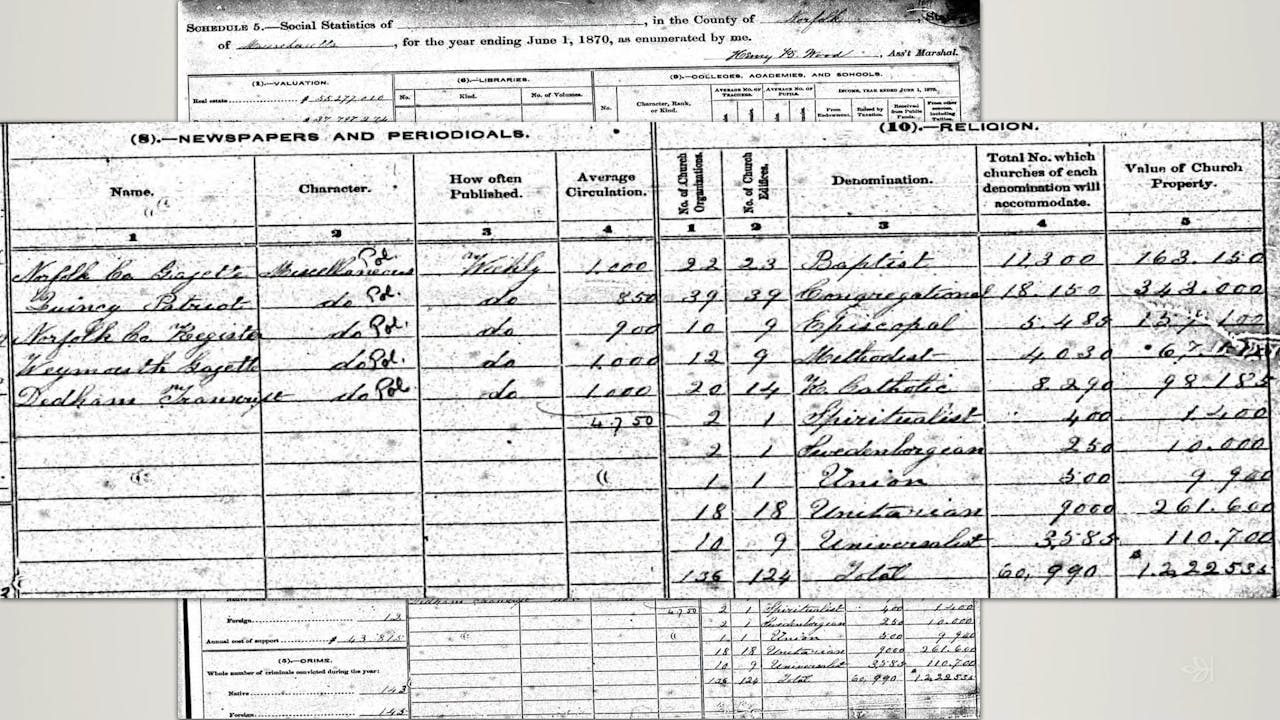 SCHEDULE 5.—Social Statistics of , in the County of Norfolk, State
of , for the year ending June 1, 1870, as enumerated by me.
Henry B. Wood, Ass't Marshal.
(1).—VALUATION. (6).—LIBRARIES. (9).—COLLEGES, ACADEMIES, AND SCHOOLS.
Real estate No. Kind. No. of Volumes. No. Character, Rank, or Kind. AVERAGE NO. OF TEACHERS. AVERAGE NO. OF PUPILS. INCOME, YEAR ENDED JUNE 1, 1870.
From Endowment. Raised by Taxation. Received from Public Funds. From other sources, including Tuition.
(8).—NEWSPAPERS AND PERIODICALS.
Name. Character. How often Published. Average Circulation.
1 2 3 4
Norfolk Co Gazette Miscellaneous Pol. Weekly 1.000
Quincy Patriot do Pol. do 850
Norfolk Co Register do Pol. do 900
Weymouth Gazette do Pol. do 1.000
Dedham Transcript do Pol do 1.000
4.750
(10).—RELIGION.
No. of Church Organizations. No. of Church Edifices. Denomination. Total No. which churches of each denomination will accommodate. Value of Church Property.
1 2 3 4 5
22 23 Baptist 11.300 163.150
39 39 Congregational 18.150 343.000
10 9 Episcopal 5.485
12 9 Methodist 4.030
20 14 R. Catholic 8.290 98.185
2 1 Spiritualist 400 1.400
2 1 Swedenborgian 250 10.000
1 1 Union 500 9.900
18 18 Unitarian 9000 261.600
10 9 Universalist 3.585 110.700
136 124 Total 60,990 $1.222535
Foreign 13
Annual cost of support $
(5).—CRIME.
Whole number of criminals convicted during the year:
Native 143
Foreign 143
4.750
2 1 Spiritualist 400 1.400
2 1 Swedenborgian 250 10.000
1 1 Union 500 9.900
18 18 Unitarian 9000 261.600
10 9 Universalist 3585 110.700
136 124 Total 60,990 1.222535